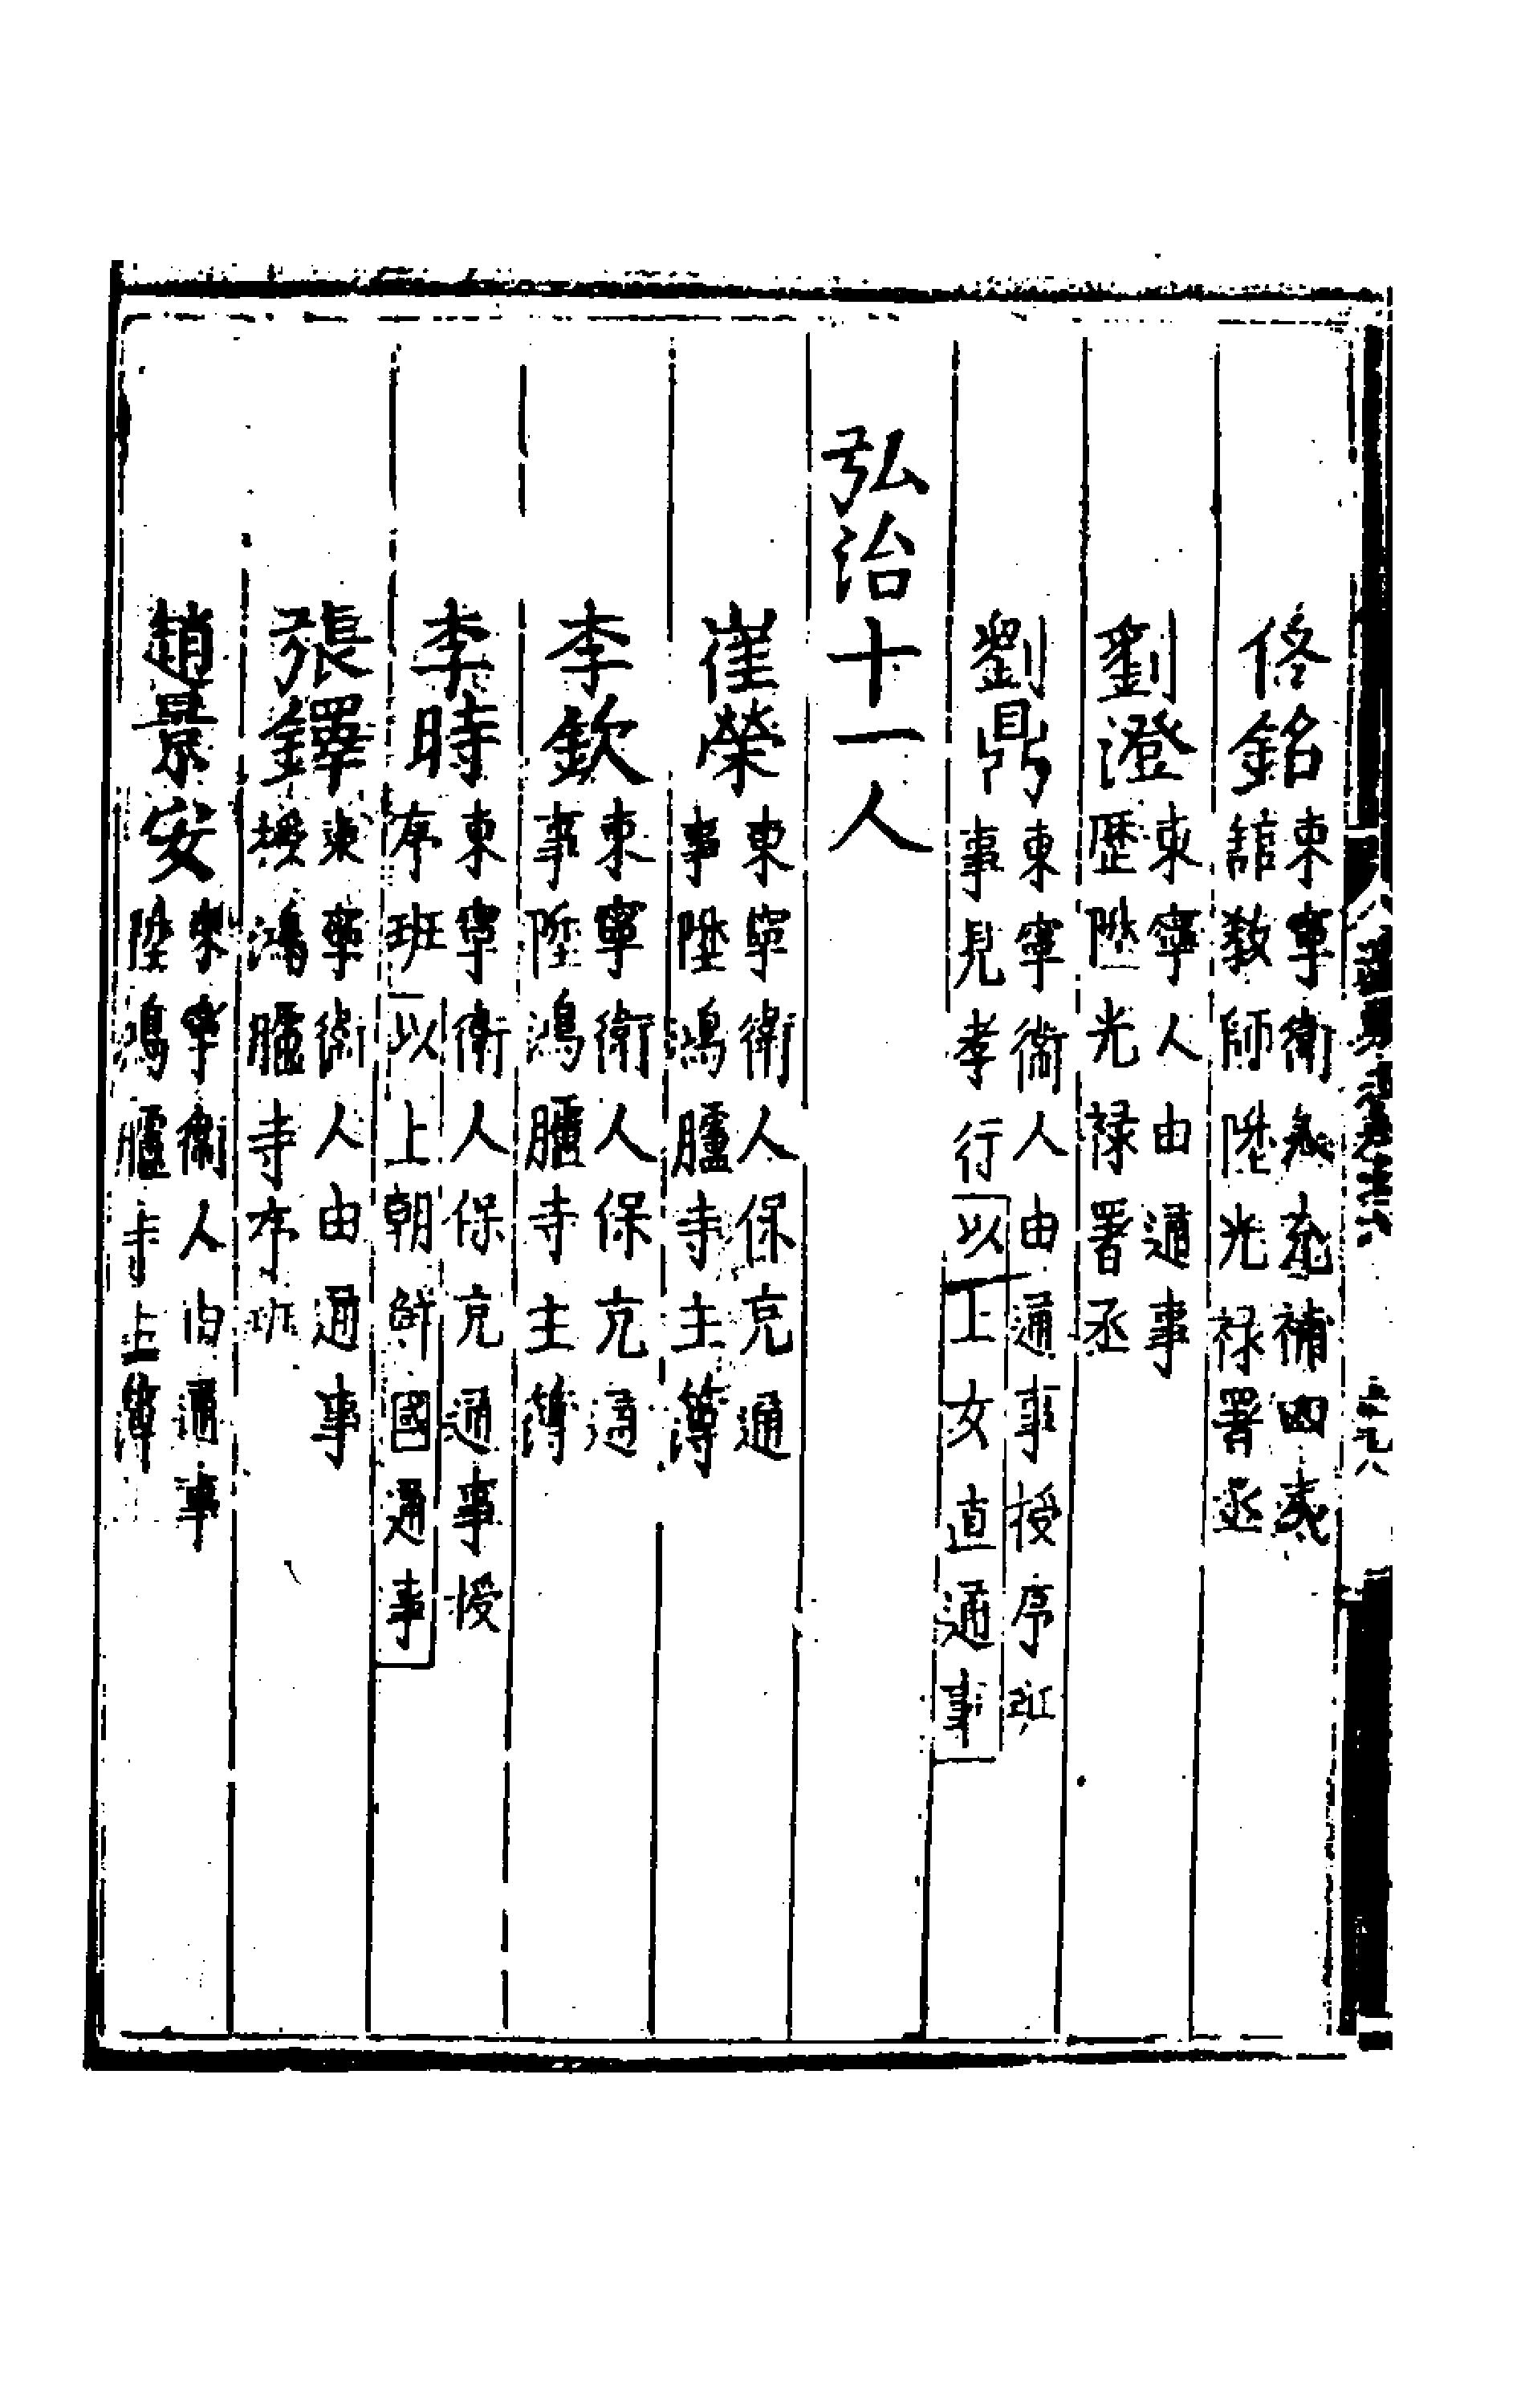 佟銘東寧衛人充補四夷
舘敎師陞光祿署丞
劉澄東寧人由通事
歷陞光祿署丞
劉鼎東寧衛人由通事授序班
事見孝行以上女直通事
弘治十一人
崔榮東寧衛人保充通
事陞鴻臚寺主簿
李欽東寧衛人保充通
事陞鴻臚寺主簿
李時東寧衛人保充通事授
序班以上朝鮮國通事
張鐸東寧衛人由通事
授鴻臚寺序班
趙景安東寧衛人由通事
陞鴻臚寺主簿